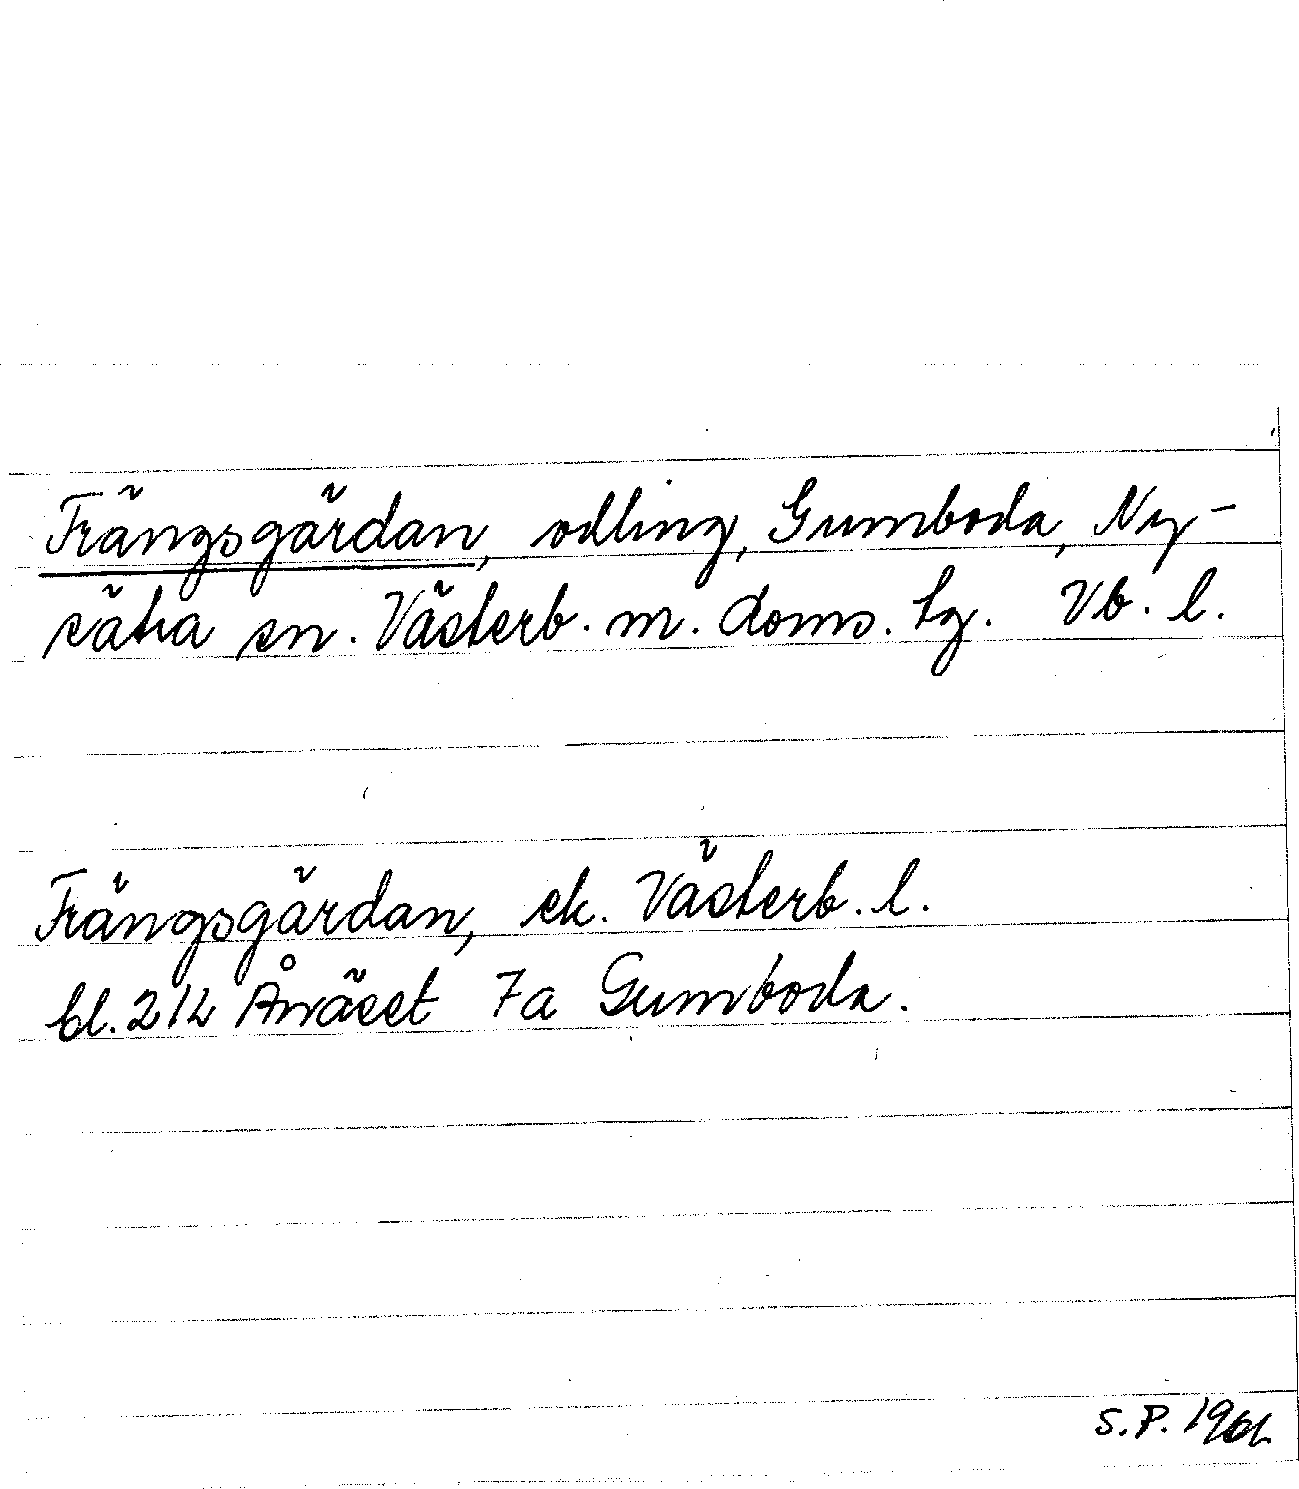 Trängsgärdan, odling, Gumboda, Ny-
sätra sn. Västerb. m. doms. tg. Vb. l.
Trängsgärdan, ek. Västerb. l.
bl. 212 Ånäset 7a Gumboda.
S.P. 196